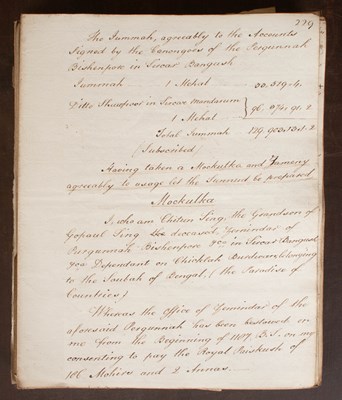 229
The Jummah, agreeably to the Accounts
Signed by the Canongoes of the Pergunnah
Bishenpore in Sircar Bangush
Jummah 1 Mehal
Ditto Sheerpoor in Sircar Mandarun
1 Mehal
Total Jummah
(Subscribed)
Having taken a Mochulka and Zameny
agreeably to usage let the Sunnud be prepared
Mochulka
I, who am Chitun Sing, the Grandson of
Gopaul Sing deceased, Zemindar of
Purgunnah Bishenpore &ca in Sircar Bangush
&ca Dependant on Chicklah Burdwan, belonging
to the Soubah of Bengal, (the Paradise of
Countries)
Whereas the Office of Zemindar of the
aforesaid Pergunnah has been bestowed on
me from the Beginning of B.S. on my
consenting to pay the Royal Paishcush of
186 Mohurs and 2 Annas.